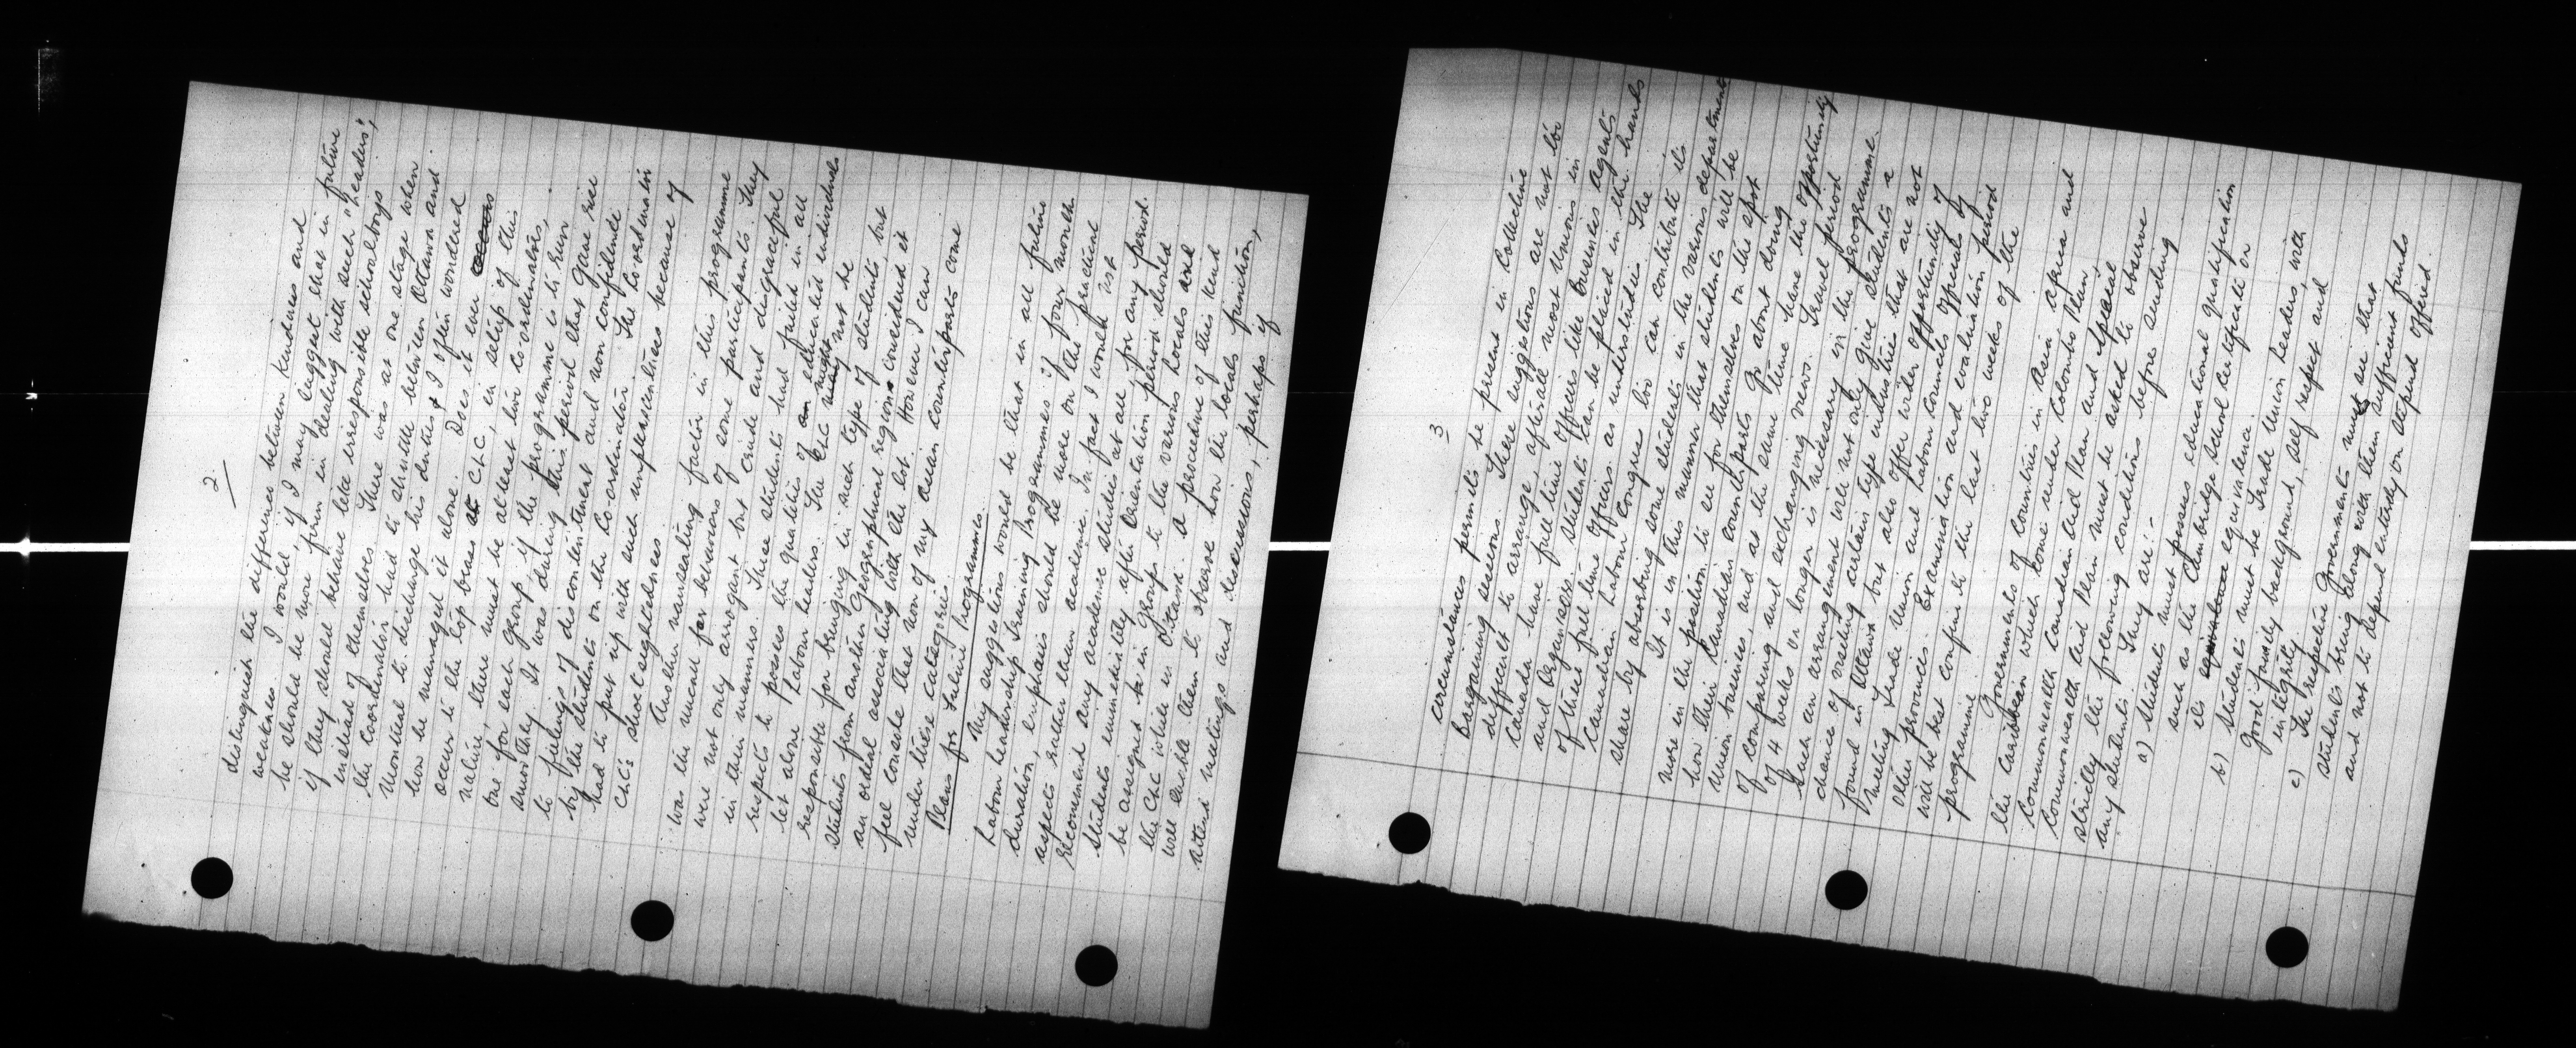 2.
distinguish the difference between kindness and
weakness. I would, if I may suggest that in future
he should be more firm in dealing with such "Leaders",
if they should behave like irresponsible schoolboys
instead of themselves. There was at one stage when
the Coordinator had to shuttle between Ottawa and
Montreal to discharge his duties & I often wondered
how he managed it alone. Does it ever
occur to the top brass at CLC, in setup of this
nature, there must be atleast two Co-ordinators,
one for each group if the programme is to run
smoothly. It was during this period that gave rise
to feelings of discontentment and non confidence
by the students on the Co-ordinator. The Co-ordinator
had to put up with such unpleasantness because of
CLC's shortsightedness.
Another nauseating factor in this programme
was the uncut for behaviours of some participants. They
were not only arrogant but crude and disgraceful
in their manners. These students had failed in all
respects to posses the qualities of an educated individuals
let alone Labour leaders. The CLC might not be
responsible for bringing in such type of students, but
students from another Geographical regions considered it
an ordeal associating with the lot. However I can
feel console that non of my asian counterparts come
under these categories.
Plans for Future Programmes.
My suggestions would be that in all future
Labour headership Training Programmes of four month
duration, emphasis should be more on the practical
aspects rather than academic. In fact I would not
recomment any academic studies at all, for any period.
Students immediately after Orientation period should
be assigned in Groups to the various locals and
the CLC while in Ottawa. A procedure of this kind
will enable them to observe how the locals function,
attend meetings and discussions, perhaps if
3
circumstances permits be present in Collective
bargaining sessions. These suggestions are not too
difficult to arrange, afterall most Unions in
Canada have full time officers like business agents
and Organisers. Students can be placed in the hands
of these full time officers as understudies. The
Canadian Labour Congress too can contribute its
share by absorbing some students in the various departments
It is in this manner that students will be
more in the position to see for themselves on the spot
how their Canadian counterparts go about doing
union business, and at the same time have the opportunity
of comparing and exchanging views. Travel period
of 4 weeks or longer is necessary in the programme.
Such an arrangement will not only give students a
chance of visiting certain type industries that are not
found in Ottawa but also offer wider opportunity of
meeting Trade Union and Labour Councils Officials of
other provinces. Examination and evaluation period
will be best confine to the last two weeks of the
programme.
Governments of Countries in Asia Africa and
the Caribbean which come under Colombo Plan,
Commonwealth Canadian Aid Plan and Special
Commonwealth Aid Plan must be asked to observe
strictly the following conditions before sending
any students. They are:-
a) Students must posses educational qualification
such as the Cambridge School Certificate or
its equivalence.
b) Students must be Trade Union Leaders, with
good family background, self respect and
integrity.
c) The respective Governments must see that
students bring along with them sufficient funds
and not to depend entirely on stipend offered.